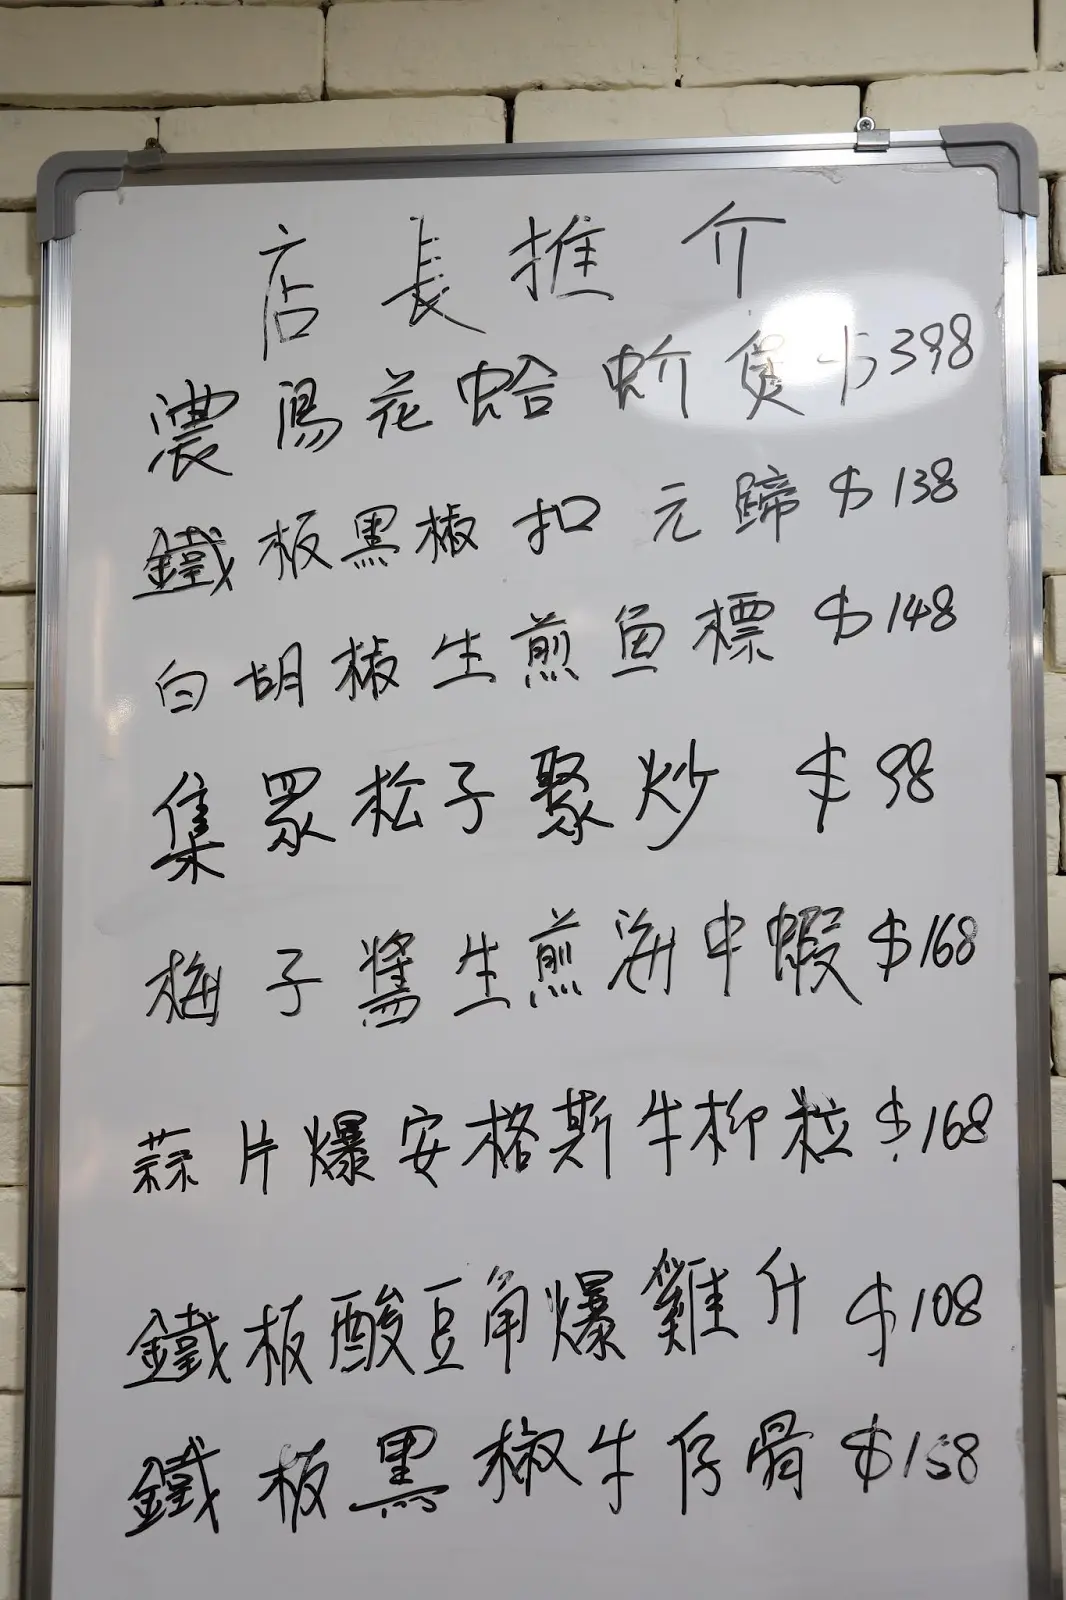 店長推介
濃湯花蛤蚧煲 $398
鐵板黑椒扣元蹄 $138
白胡椒生煎魚標 $148
集眾松子聚炒 $98
梅子醬生煎海中蝦 $168
蒜片爆安格斯牛柳粒 $168
鐵板酸豆角爆雞什 $108
鐵板黑椒牛仔骨 $158